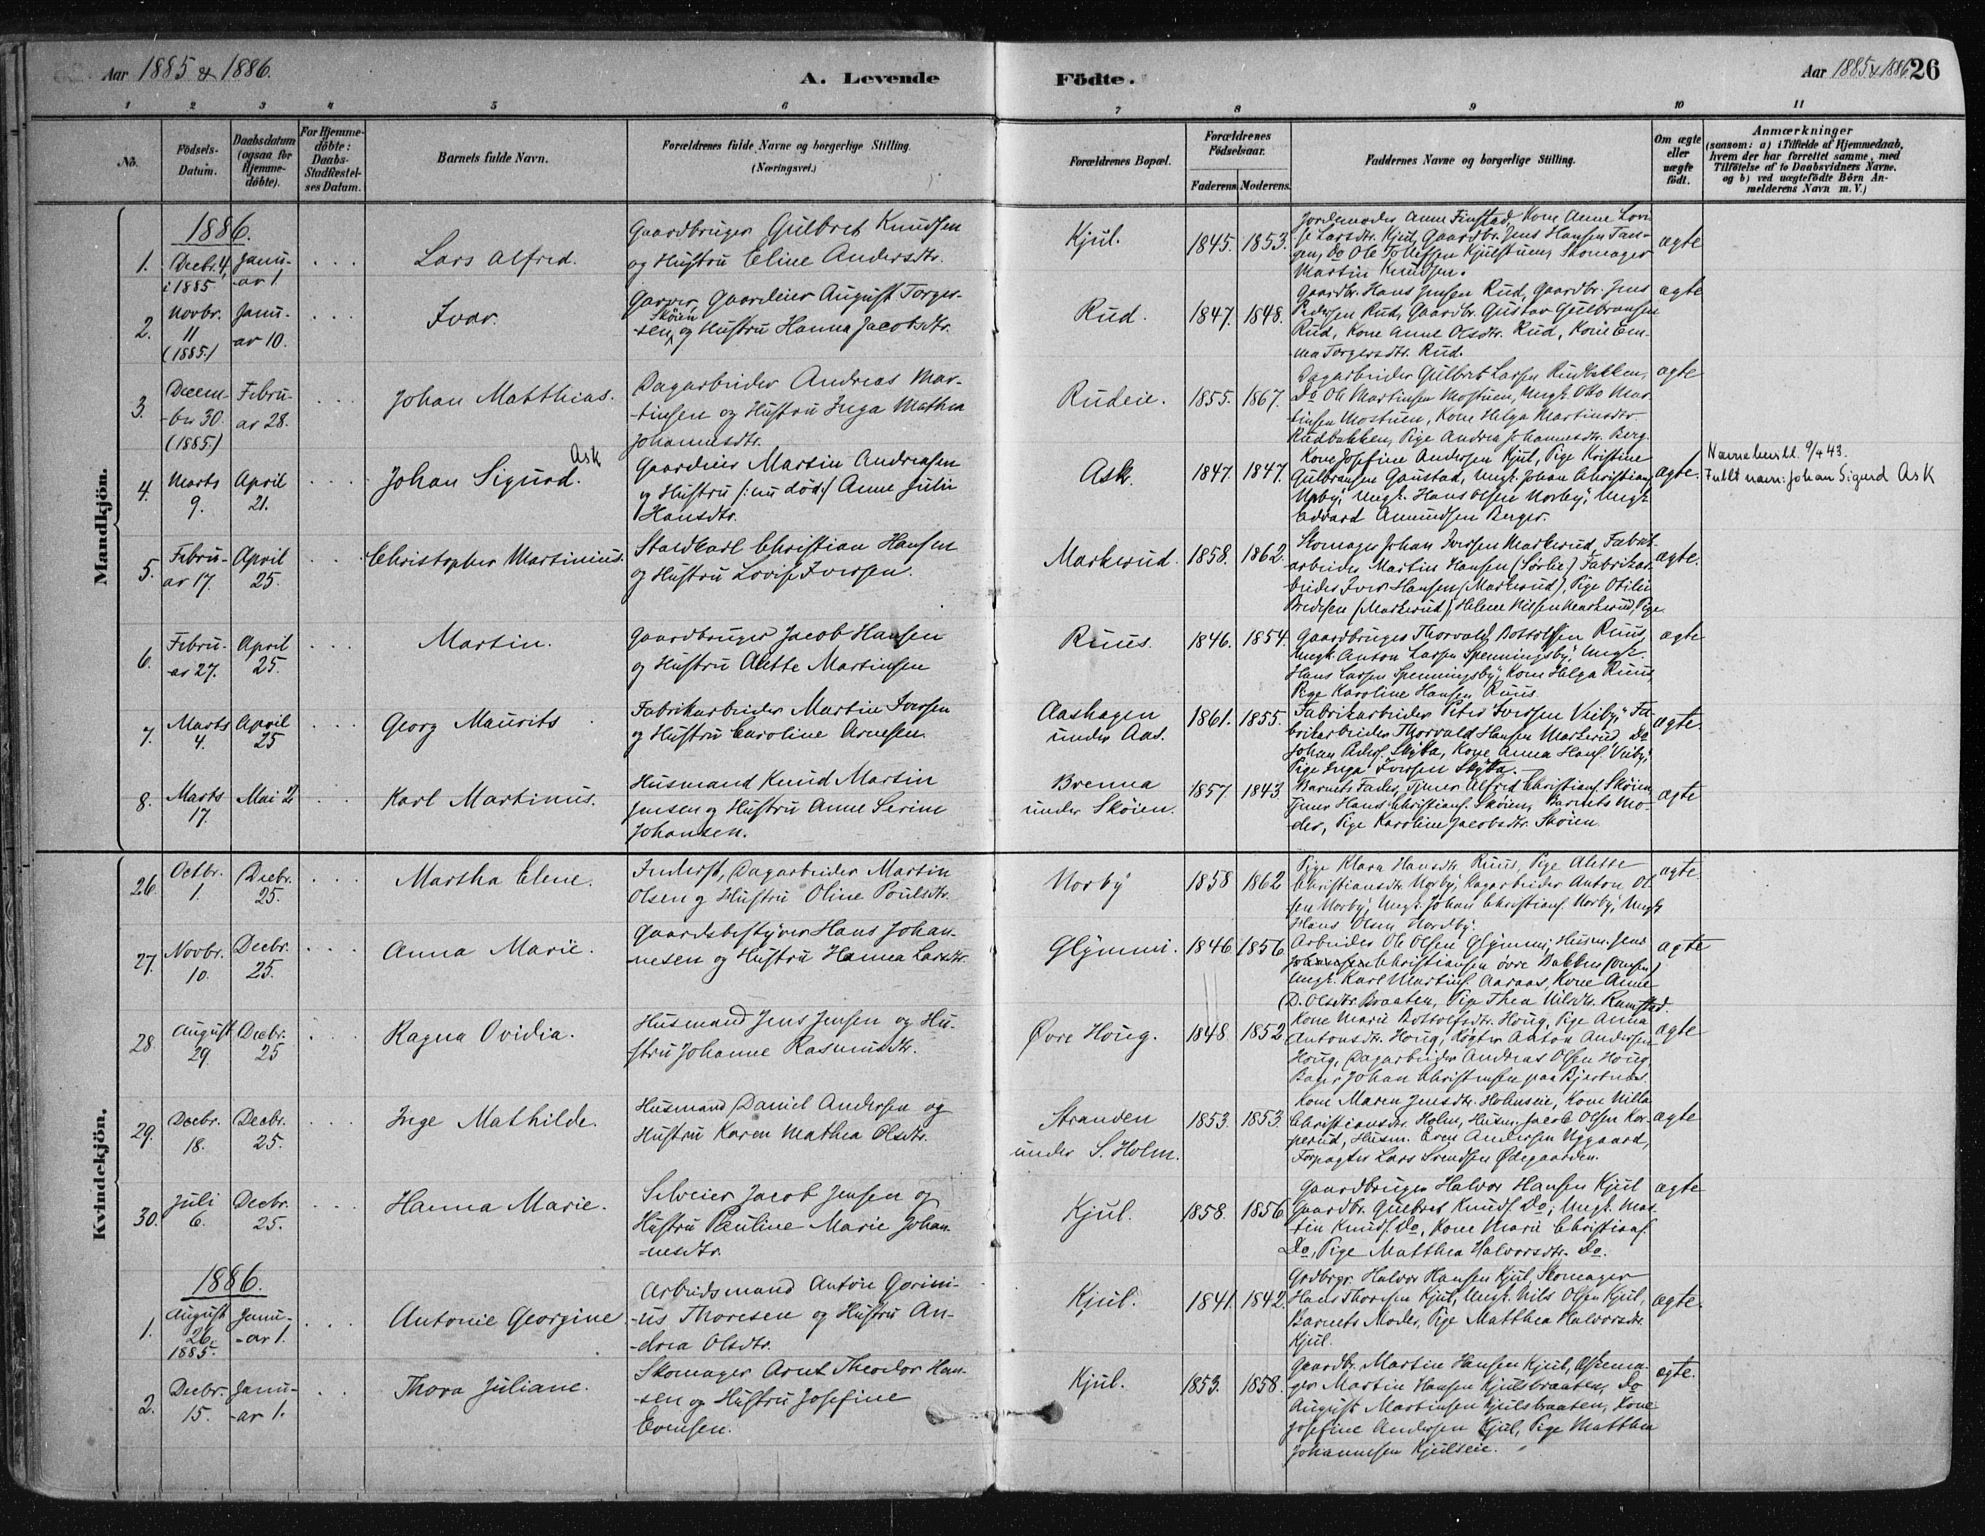 Aar 1885 & 1886.
A. Levende
Födte.
Aar 1885 & 1886 26
1 2 3 4 5 6 7 8 9 10 11
No.
Födsels-Datum.
Daabsdatum (ogsaa for Hjemme-döbte).
For Hjemme-döbte: Daabs-Stadfæstel-ses Datum.
Barnets fulde Navn.
Forældrenes fulde Navne og borgerlige Stilling.
(Næringsvei.)
Forældrenes Bopæl.
Forældrenes Födselsaar.
Faderens. Moderens.
Faddernes Navne og borgerlige Stilling.
Om ægte eller uægte födt.
Anmærkninger
(saasom: a) i Tilfælde af Hjemmedaab, hvem der har forrettet samme, med Tilföielse af to Daabsvidners Navne, og b) ved uægtefödte Börn An-melderens Navn m. V.)
Mandkjön.
1886.
1. Decbr. 4, i 1885
Janu-ar 1
Lars Alfred.
Gaardbruger Gulbret Knudsen
og Hustru Eline Andersdtr.
Kjul.
1845. 1853.
Jordemoder Anne Finstad, Kone Anne Lovi-
se Larsdtr. Kjul, Gaardbr. Jens Hansen Tan-
gen, Do Ole Tollefsen Kjulstuen, Skomager
Martin Knudsen.
ægte
2. Novbr. 11 (1885)
Janu-ar 10.
Ivar.
Garver, Gaardeier August Torger-
sen Skøien og Hustru Hanna Jacobsdtr.
Rud.
1847. 1848.
Gaardbr. Hans Jensen Rud, Gaardbr. Jens
Pedersen Rud, Gaardbr. Gustav Gulbransen
Rud, Kone Anne Olsdtr. Rud, Kone Em-
ma Torgersdtr. Rud.
ægte
3. Decem-ber 30. (1885)
Febru-ar 28.
Johan Matthias.
Dagarbeider Andreas Mar-
tinsen og Hustru Inga Mathea
Johannesdtr.
Rudeie.
1855. 1867.
Dagarbeider Gulbret Larsen Rudbakken,
Do Ole Martinsen Mostuen, Ungk. Otto Mar-
tinsen Mostuen, Kone Helga Martinsdtr
Rudbakken, Pige Andrea Johannesdtr. Berg.
ægte
4. Marts 9.
April 21.
Johan Sigurd. Ask
Gaardeier Martin Andreasen
og Hustru /: nu død :/ Anne Julie
Hansdtr.
Ask.
1847. 1847.
Kone Josefine Andersen Kjul, Pige Kristine
Gulbransen Gaustad, Ungk. Johan Christians.
Norby, Ungk. Hans Olsen Norby, Ungk.
Edvard Amundsen Berger.
ægte.
Navnebevill. 9/4 43.
Fullt navn: Johan Sigurd Ask
5. Febru-ar 17.
April 25.
Christopher Martinius.
Staldkarl Christian Hansen
og Hustru Lovise Iversen.
Markerud.
1858. 1862.
Skomager Johan Iversen Markerud, Fabrik-
arbeider Martin Hansen (Sørlie), Fabrikar-
beider Iver Hansen (Markerud), Pige Otilie
Bredesen (Markerud), Helene Nilsen Markerud, Pige
ægte.
6. Febru-ar 27.
April 25.
Martin.
Gaardbruger Jacob Hansen
og Hustru Alette Martinsen
Ruus.
1846. 1854.
Gaardbruger Thorvald Bottolfsen Ruus,
Ungk. Anton Larsen Spenningsby, Ungk.
Hans Larsen Spenningsby, Kone Helga Ruus,
Pige Karoline Hansen Ruus.
ægte
7. Marts 4.
April 25
Georg Maurits
Fabrikarbeider Martin Iversen
og Hustru Caroline Arnesen.
Aashagen
under Aas.
1861. 1855.
Fabrikarbeider Peter Iversen Veiby, Fa-
brikarbeider Thorvald Hansen Markerud, Do
Johan Peders. Skytta, Kone Anna Hans. Veiby,
Pige Inga Iversen Skytta.
ægte.
8. Marts 17.
Mai 2
Karl Martinus.
Husmand Knud Martin
Jensen og Hustru Anne Serine
Johansen.
Brenna
under Skøien.
1857. 1843
Barnets Fader, Tjener Alfred Christians. Skøien,
Tjener Hans Christians. Skøien, Barnets Mo-
der, Pige Karoline Jacobsdtr. Skøien
ægte
Kvindekjön.
26. Octbr. 1.
Decbr. 25.
Martha Elene.
Inderst, Dagarbeider Martin
Olsen og Hustru Oline Poulsdtr.
Norby
1858 1862
Pige Klara Hansdtr. Ruus, Pige Alette
Christiansdtr. Norby, Dagarbeider Anton Ol-
sen Norby, Ungk. Johan Christians. Norby, Ungk.
Hans Olsen Nordby.
ægte.
27. Novbr. 10.
Decbr. 25.
Anna Marie.
Gaardsbestyrer Hans Johan-
nesen og Hustru Hanna Larsdtr.
Glymmi.
1846 1856.
Arbeider Ole Olsen Glymmi, Husm. Jens
Christiansen øvre Bakken (Jensen)
Ungk. Karl Martins. Aaraas, Kone Anne
D. Olsdtr. Braaten, Pige Thea Nilsdtr. Ramstad.
ægte
28. August 29.
Decbr. 25
Ragna Ovidia.
Husmand Jens Jensen og Hu-
stru Johanne Rasmusdtr.
Øvre Houg.
1848. 1852
Kone Marie Bottolfsdtr. Houg, Pige Anna
Antonsdtr. Houg, Røgter Anton Andersen
Houg, Dagarbeider Andreas Olsen Houg,
Bager Johan Christensen paa Bjerknes.
ægte
29. Decbr. 18.
Decbr. 25.
Inge Mathilde.
Husmand Daniel Andersen og
Hustru Karen Mathea Olsdtr.
Stranden
under S. Holm.
1853. 1853.
Kone Maren Jensdtr. Holmseie, Kone Milla
Christiansdtr. Holm, Husm. Jacob Olsen Kor-
perud, Husm. Even Andersen Nygaard,
Forpagter Lars Svendsen Ødegaarden.
ægte
30. Juli 6.
Decbr. 25.
Hanna Marie.
Selveier Jacob Jensen og
Hustru Pauline Marie Johan-
nesdtr.
Kjul.
1858. 1856
Gaardbruger Halvor Hansen Kjul
Gaardbr. Gulbret Knuds. Do, Ungk. Mar-
tin Knuds. Do, Kone Marie Christians.
Do, Pige Matthea Halvorsdtr. Do.
ægte
1886.
1. August 26. 1885.
Janu-ar 1.
Antonie Georgine
Arbeidsmand Anton Gorini-
us Thoresen og Hustru An-
drea Olsdtr.
Kjul.
1841. 1842.
Grdbrgr. Halvor Hansen Kjul, Skomager
Hans Thoresen Kjul, Ungk. Nils Olsen Kjul,
Barnets Moder, Pige Matthea Halvorsdtr.
Kjul.
ægte.
2. Decbr. 15.
Janu-ar 1.
Thora Juliane.
Skomager Arnt Theodor Han-
sen og Hustru Josefine
Evensen.
Kjul.
1853. 1858.
Gaardbr. Martin Hansen Kjul, Skoma-
ger Martin Hansen Kjulsbraaten, Do
August Martinsen Kjulsbraaten, Kone
Josefine Andersen Kjul, Pige Matthea
Johannesen Kjulseie.
ægte.